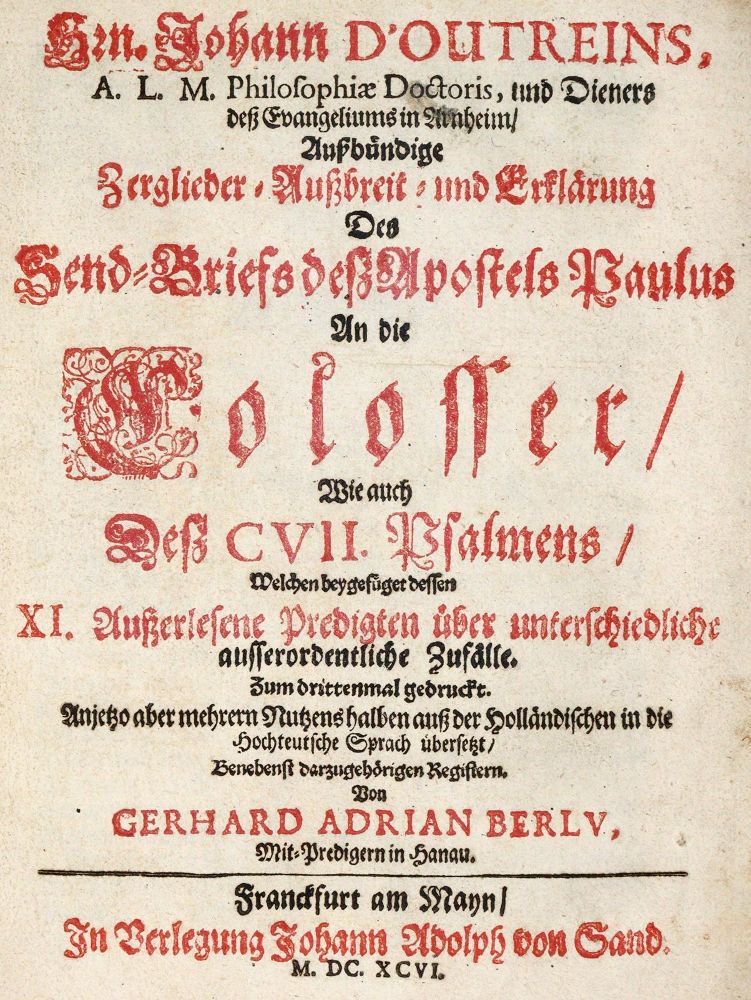 Hrn. Johann D'OUTREINS,
A. L. M. Philosophiæ Doctoris, und Dieners
deß Evangeliums in Arnheim/
Außbündige
Zerglieder- Außbreit- und Erklärung
Des
Send-Briefs deß Apostels Paulus
An die
Colosser/
Wie auch
Deß CVII. Psalmens /
Welchen beygefüget dessen
XI. Außerlesene Predigten über unterschiedliche
ausserordentliche Zufälle.
Zum drittenmal gedruckt.
Anjetzo aber mehrern Nutzens halben auß der Holländischen in die
Hochteutsche Sprach übersetzt/
Benebenst darzugehörigen Registern.
Von
GERHARD ADRIAN BERLV,
Mit-Predigern in Hanau.
Franckfurt am Mayn/
In Verlegung Johann Adolph von Sand.
M. DC. XCVI.